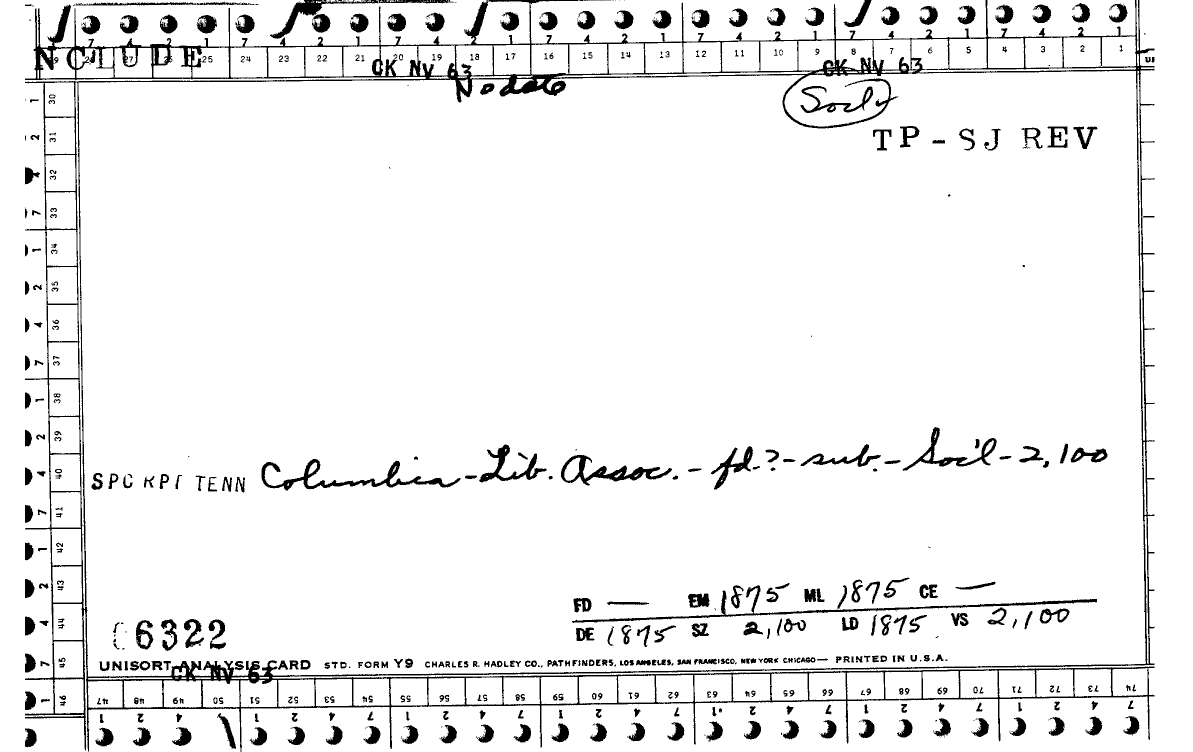 7 4 2 1 7 4 2 1 7 4 2 1 7 4 2 1 7 4 2 1 7 4 2 1 7 4 2 1
NCLUDE 25 24 23 22 21 20 19 18 17 16 15 14 13 12 11 10 9 8 7 6 5 4 3 2 1
CK NV 63 CK NV 63
No date
Soc'l
TP-SJ REV
1 30
2 31
4 32
7 33
1 34
2 35
4 36
7 37
1 38
2 39
4 40
SPC RPT TENN Columbia-Lib. Assoc. - fd.?-sub.- Soc'l-2,100
7 41
1 42
2 43
4 44
FD — EM 1875 ML 1875 CE —
DE 1875 SZ 2,100 LD 1875 VS 2,100
06322
7 45
UNISORT ANALYSIS CARD STD. FORM Y9 CHARLES R. HADLEY CO., PATHFINDERS, LOS ANGELES, SAN FRANCISCO, NEW YORK CHICAGO— PRINTED IN U.S.A.
CK NV 63
1 46
47 48 49 50 51 52 53 54 55 56 57 58 59 60 61 62 63 64 65 66 67 68 69 70 71 72 73 74
1 2 4 1 2 4 7 1 2 4 7 1 2 4 7 1 2 4 7 1 2 4 7 1 2 4 7